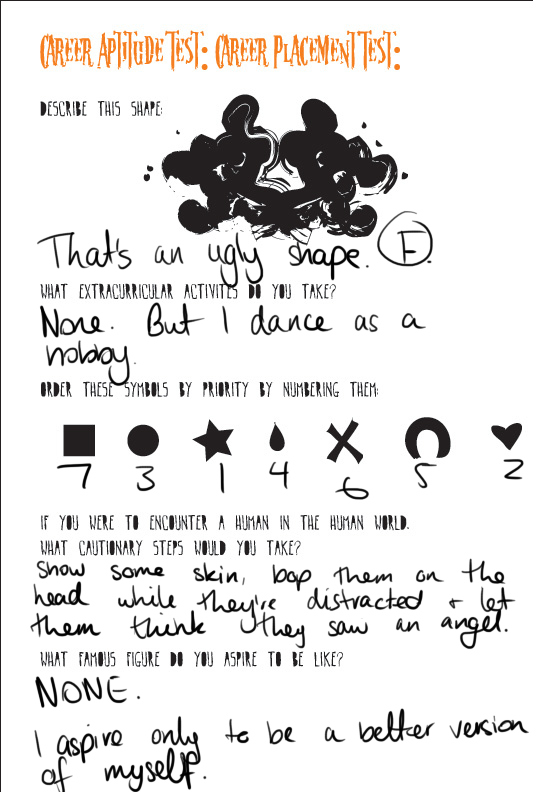 CAREER APTITUDE TEST: CAREER PLACEMENT TEST:
DESCRIBE THIS SHAPE:
That's an ugly shape. F.
WHAT EXTRACURRICULAR ACTIVITES DO YOU TAKE?
None. But I dance as a
hobby.
ORDER THESE SYMBOLS BY PRIORITY BY NUMBERING THEM:
7 3 1 4 6 5 2
IF YOU WERE TO ENCOUNTER A HUMAN IN THE HUMAN WORLD.
WHAT CAUTIONARY STEPS WOULD YOU TAKE?
Show some skin, bop them on the
head while they're distracted + let
them think they saw an angel.
WHAT FAMOUS FIGURE DO YOU ASPIRE TO BE LIKE?
NONE.
I aspire only to be a better version
of myself.